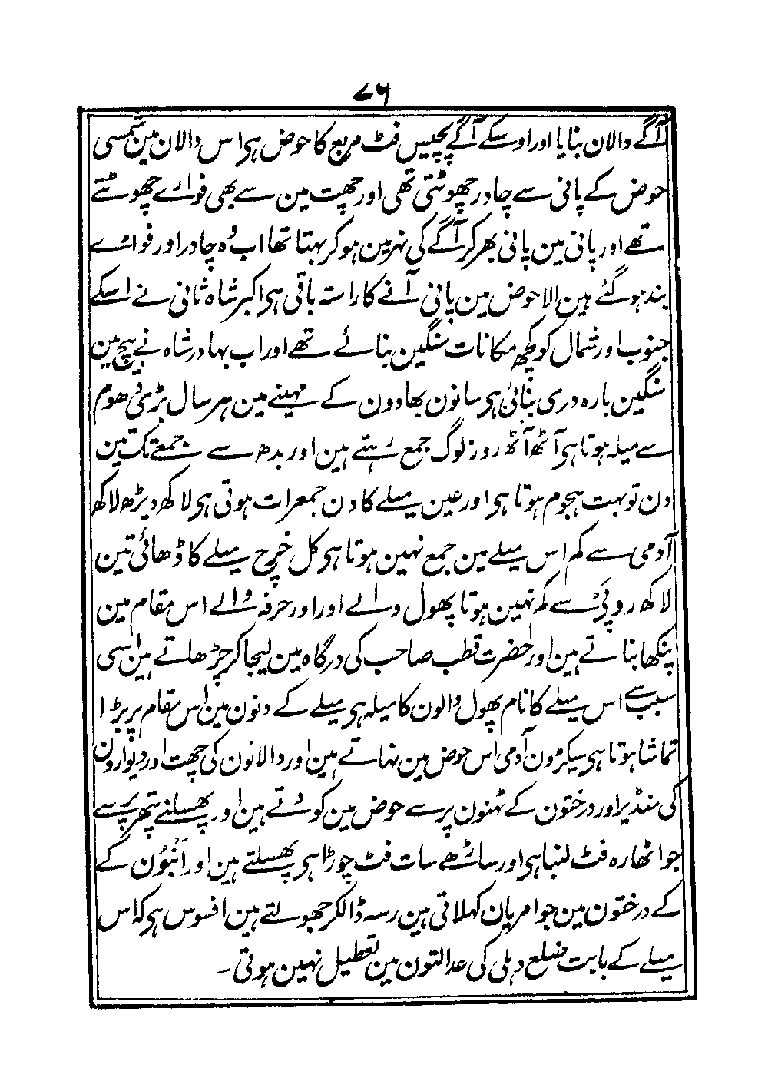 ۷۶
آگے دالان بنایا اور اوسکے آگے پچیس فٹ مربع کا حوض ہی اس دالان مین شمسی
حوض کے پانی سے چادر چھوٹتی تھی اور چھت مین سے بھی فوارے چھوٹتے
تھے اور پانی مین پانی بھر کر آگے کی نہر مین ہو کر بہتا تھا اب وہ چادر اور فوارے
بند ہو گئے ہین الا حوض مین پانی آنے کا راستہ باقی ہی اکبر شاہ ثانی نے اسکے
جنوب اور شمال کو کچھ مکانات سنگین بنائے تھے اور اب بہادر شاہ نے بیچ مین
سنگین بارہ دری بنائی ہی سانون بھادون کے مہینے مین ہر سال بڑی دھوم
سے میلہ ہوتا ہی آٹھ آٹھ روز لوگ جمع رہتے ہین اور بدھ سے جمعے تک تین
دن تو بہت ہجوم ہوتا ہی اور عین میلے کا دن جمعرات ہوتی ہی لاکھ دیڑھ لاکھ
آدمی سے کم اس میلے مین جمع نہین ہوتا ہی کل خرچ میلے کا ڈھائی تین
لاکھ روپئے سے کم نہین ہوتا پھول والے اور اور حرفہ والے اس مقام مین
پنکھا بناتے ہین اور حضرت قطب صاحب کی درگاہ مین لیجا کر چڑھاتے ہین اسی
سبب سے اس میلے کا نام پھول والون کا میلہ ہی میلے کے دنون مین اس مقام پر بڑا
تماشا ہوتا ہی سیکڑون آدمی اس حوض مین نہاتے ہین اور دالانون کی چھت اور دیوارون
کی منڈیر اور درختون کے ٹہنون پر سے حوض مین کودتے ہین اور پھسلنے پتھر پر سے
جو اٹھارہ فٹ لنبا ہی اور ساڑھے سات فٹ چوڑا ہی پھسلتے ہین اور آنبون کے
کے درختون مین جو امریان کہلاتی ہین رسہ ڈالکر جھولتے ہین افسوس ہی کہ اس
میلے کے بابت ضلع دہلی کی عدالتون مین تعطیل نہین ہوتی -